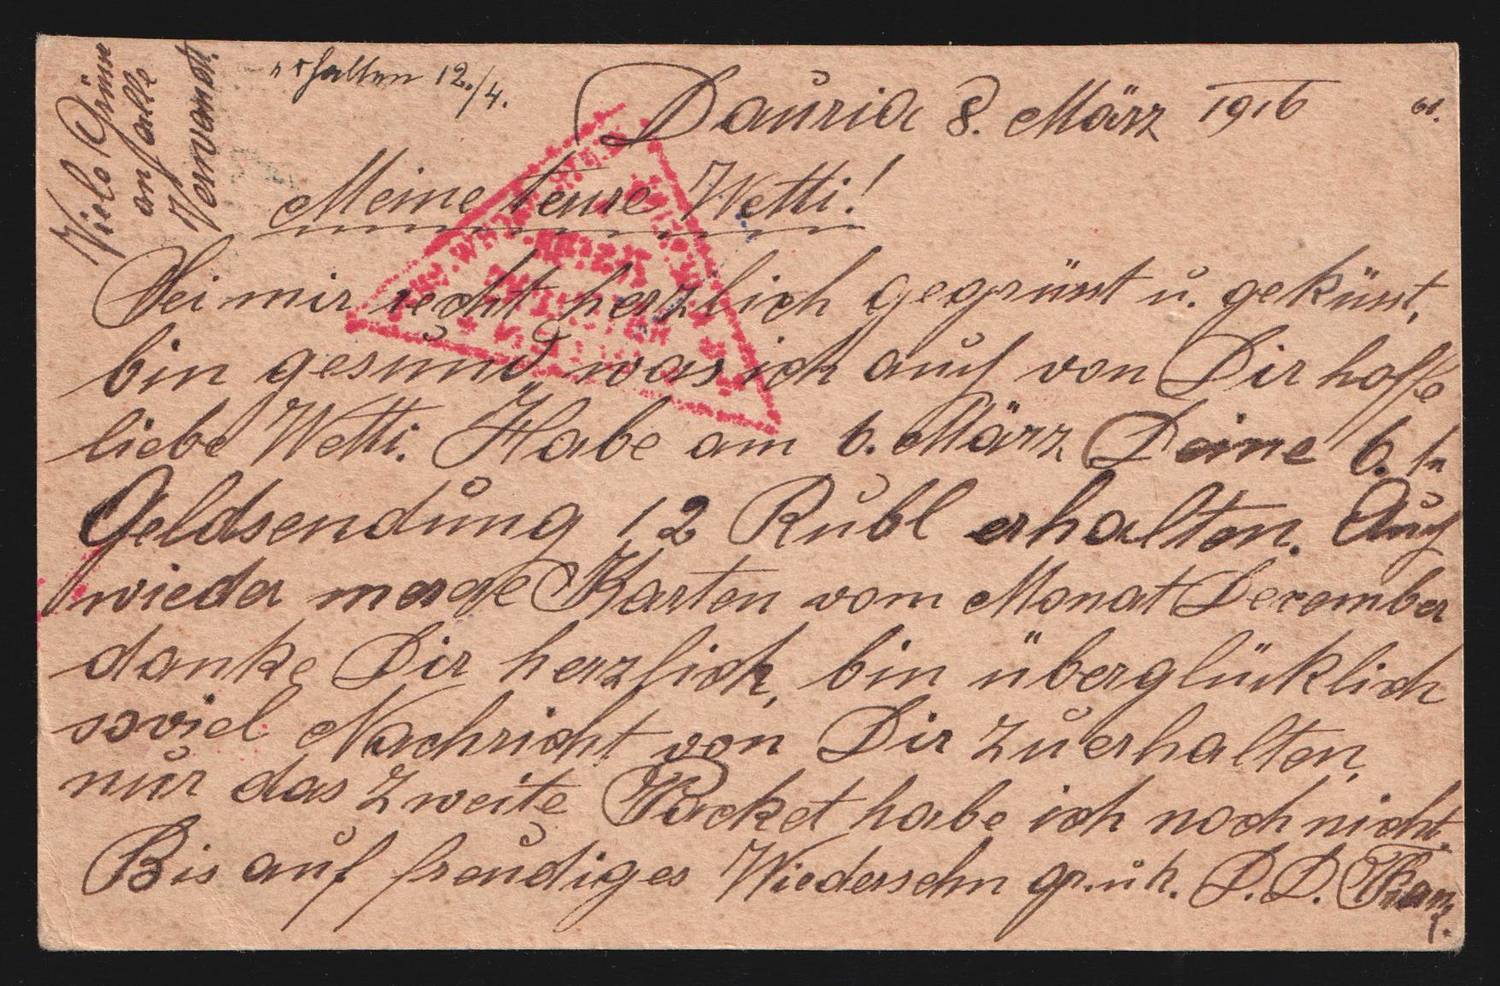 erhalten 12./4.
Dauria 8. März 1916
61.
Meine teure Wetti!
Sei mir recht herzlich gegrüsst u. geküsst,
bin gesund was ich auch von Dir hoffe
liebe Wetti. Habe am 6. März Deine 6. te
Geldsendung 12 Rubl erhalten. Auch
wieder Karten vom Monat December
danke Dir herzlich, bin überglücklich
soviel Nachricht von Dir zuerhalten,
nur das zweite Packet habe ich noch nicht.
Bis auf freudiges Wiedersehn gr. u. k. D. D. Franz
Viele Grüsse
an alle
Verwandt.